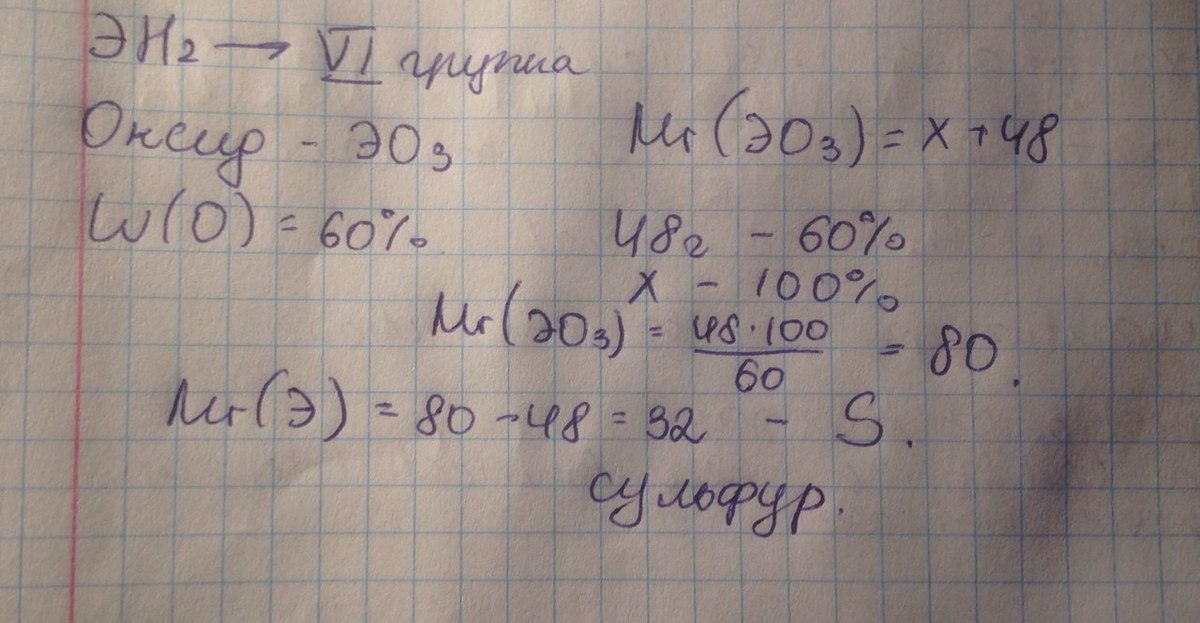 ЭН₂ → VI группа
Оксид - ЭО₃
Mr(ЭО₃) = х + 48
W(O) = 60%.
48г - 60%
х - 100%
Mr(ЭО₃) = 48·100/60 = 80.
Mr(Э) = 80 - 48 = 32 - S.
сульфур.